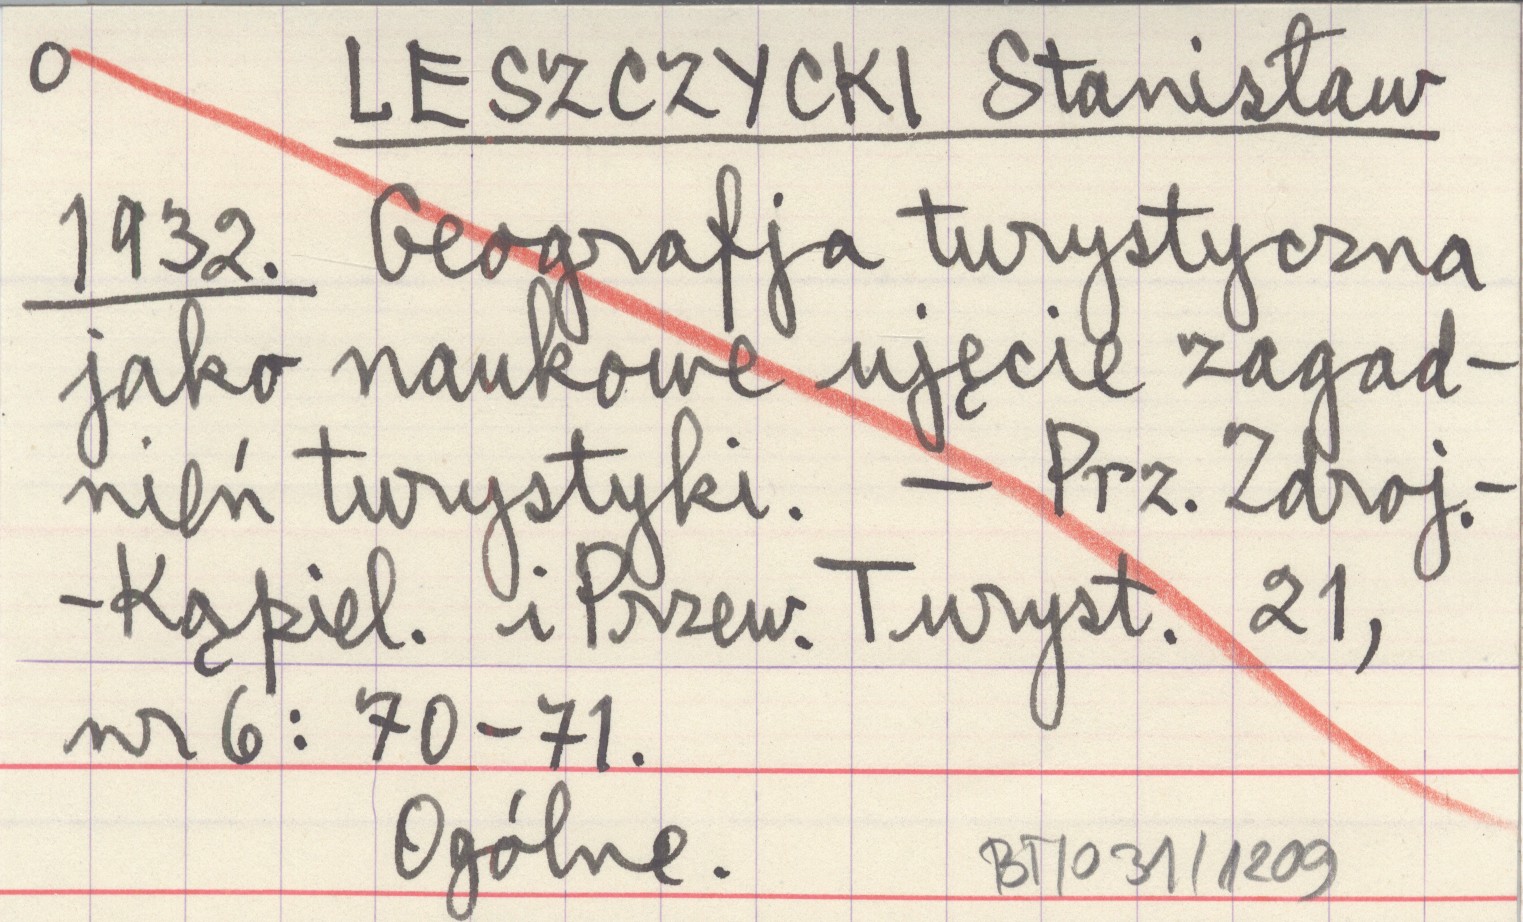 O LESZCZYCKI Stanisław
1932. Geografja turystyczna
jako naukowe ujęcie zagad-
nień turystyki. – Prz. Zdroj.-
-Kąpiel. i Przew. Turyst. 21,
nr 6: 70-71.
Ogólne.
BT/031/1209